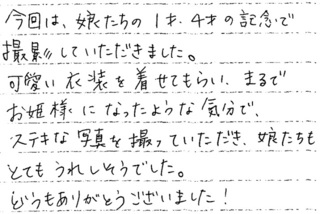 今回は、娘たちの1才、4才の記念で
撮影していただきました。
可愛い衣装を着せてもらい、まるで
お姫様になったような気分で、
ステキな写真を撮っていただき、娘たちも
とてもうれしそうでした。
どうもありがとうございました!